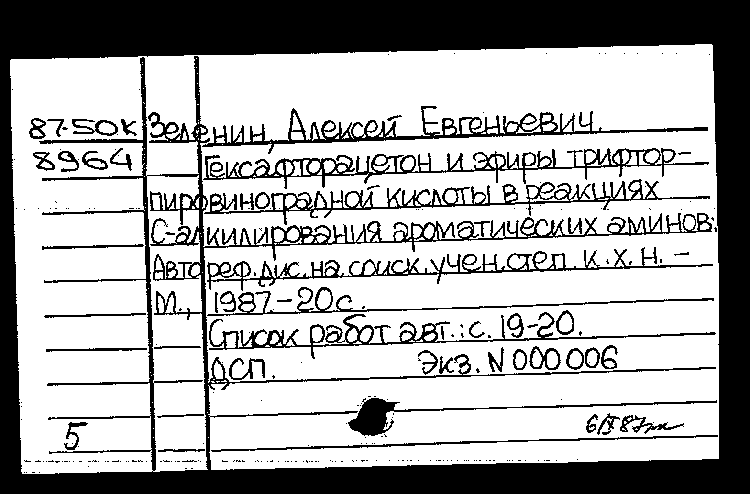 87-50К Зеленин, Алексей Евгеньевич.
8964 Гексафторацетон и эфиры трифтор-
пировиноградной кислоты в реакциях
С-алкилирования ароматических аминов:
Автореф. дис. на соиск. учен. степ. к. х. н. –
М., 1987. – 20 с.
Список работ авт.: с. 19-20.
ДСП. Экз. N 000006
5